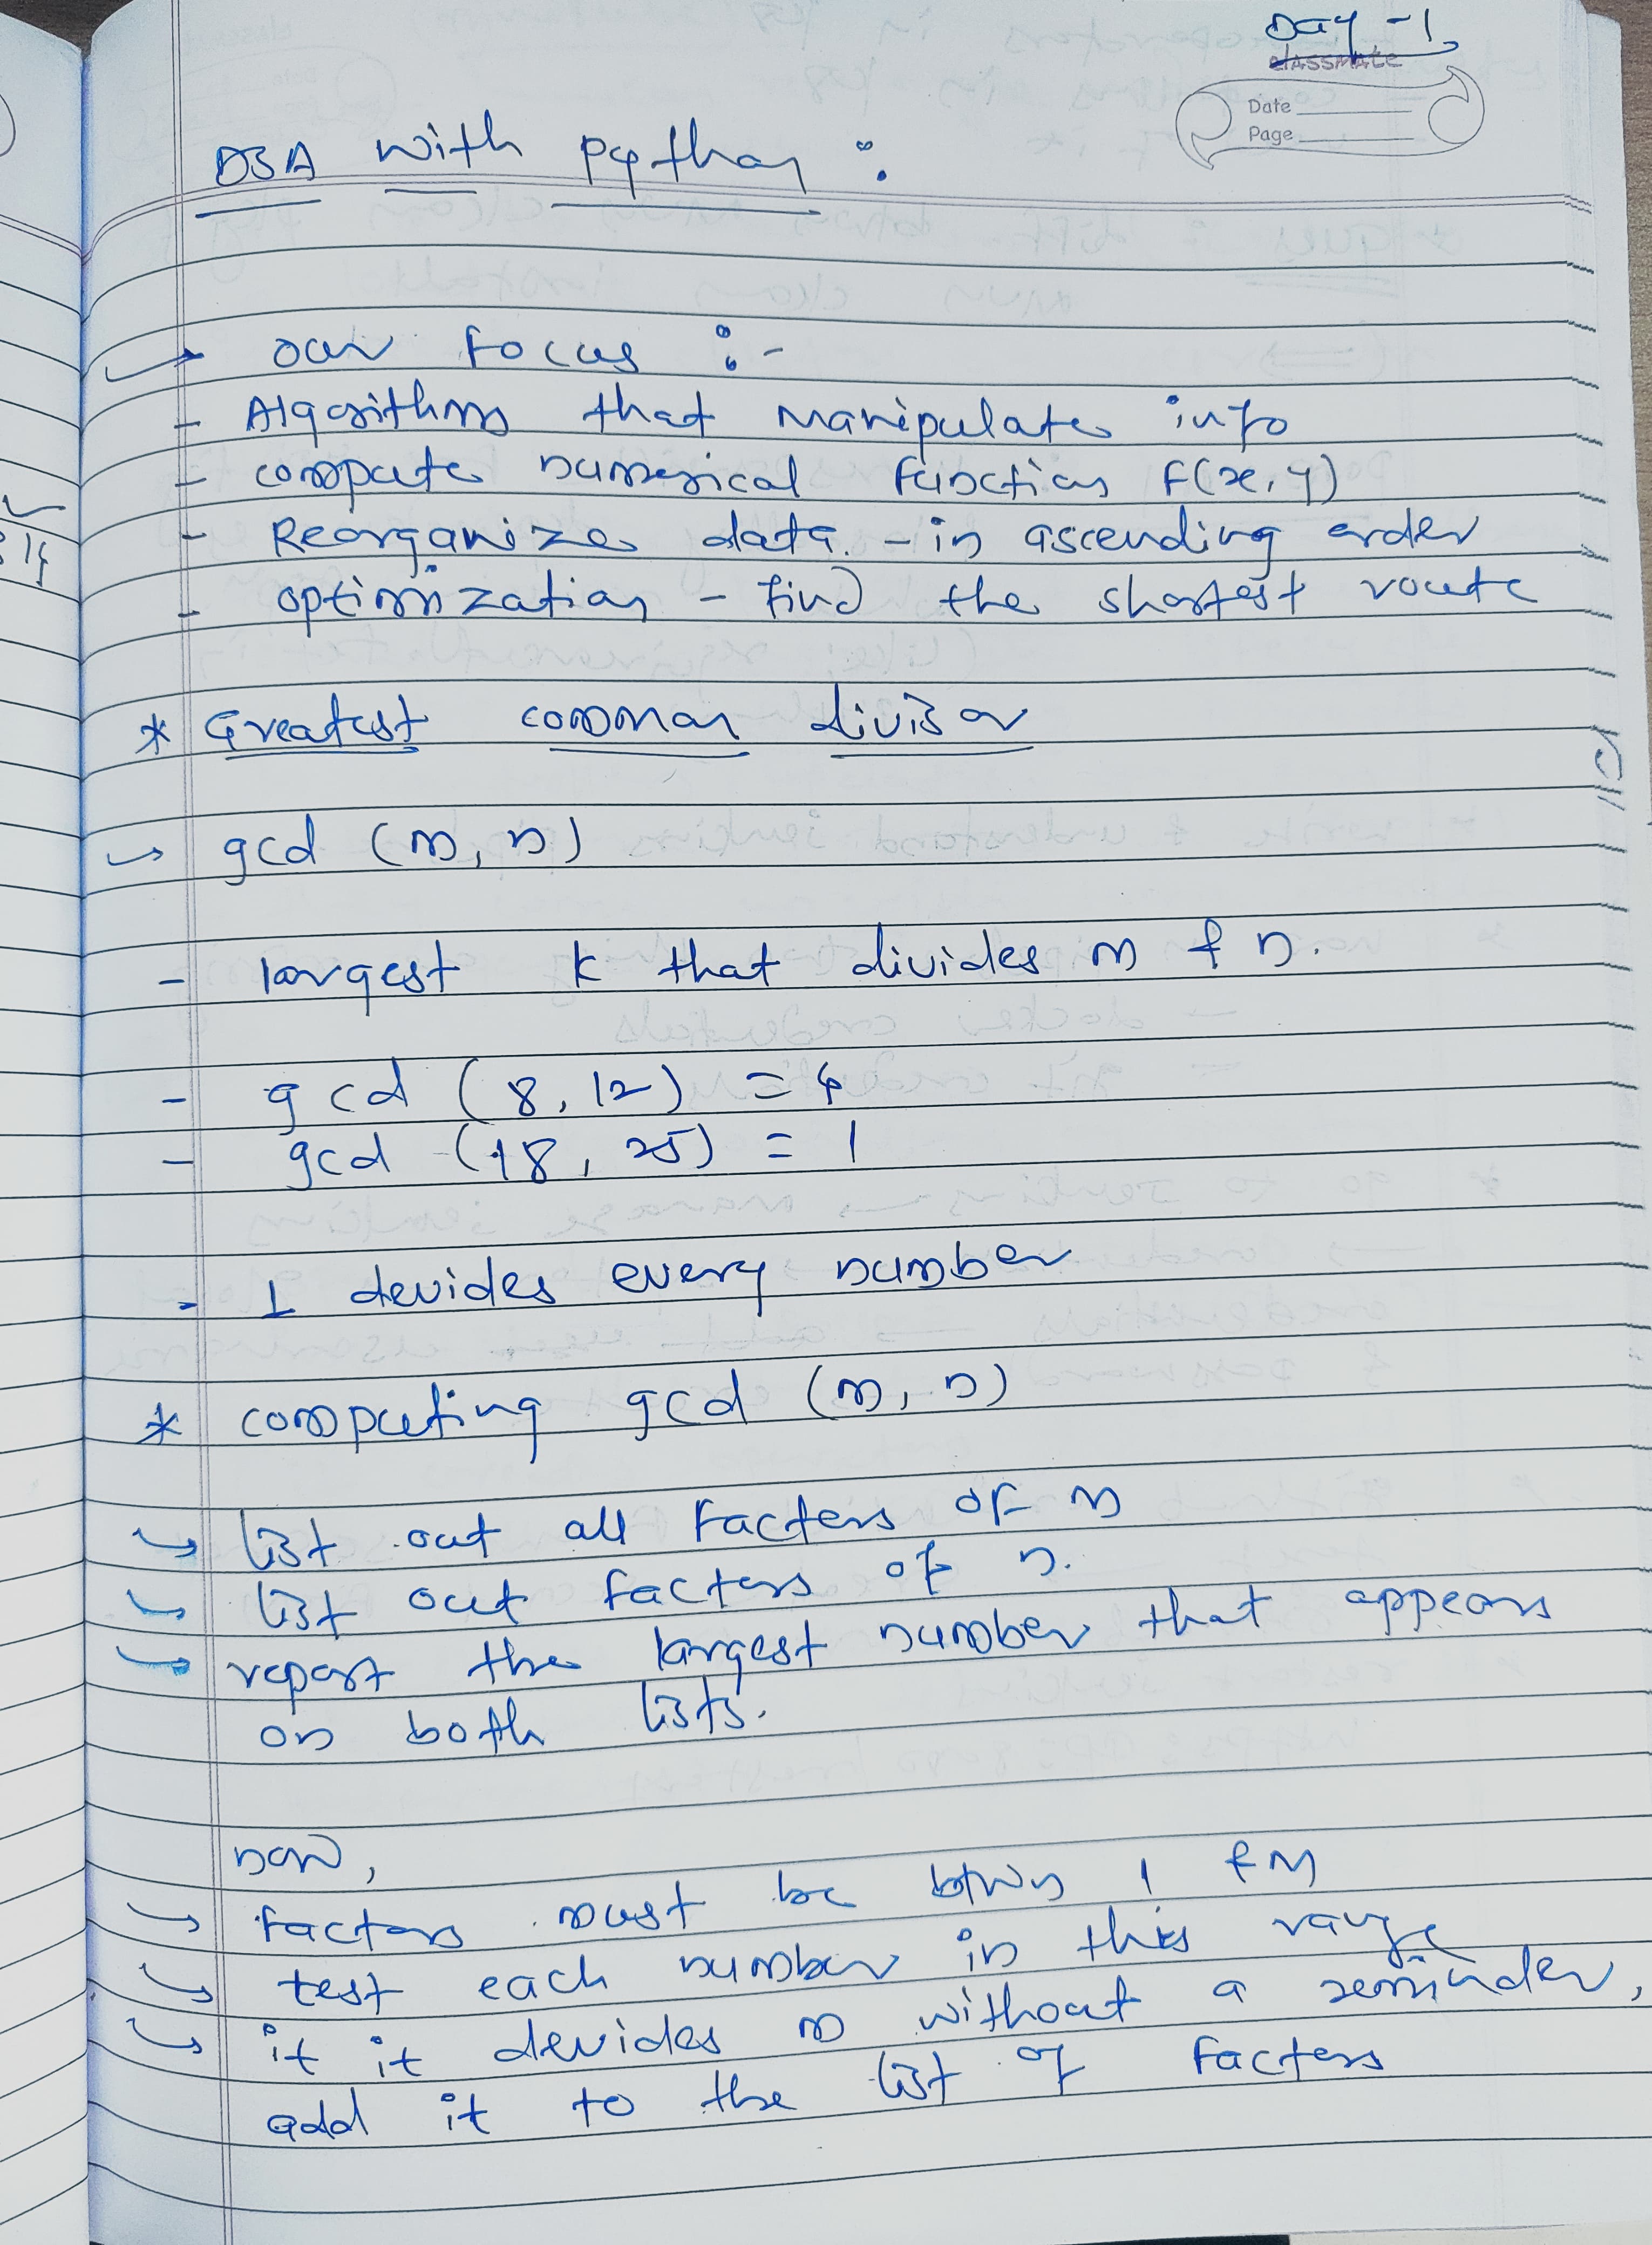 Day - 1
classmate
Date
Page
DSA with python :
→ our focus :-
- Algorithms that manipulate info
- compute numerical function f(x, y)
- Reorganize data - in ascending order
- optimization - find the shortest route
* Greatest common divisor
→ gcd (m, n)
- largest k that divides m & n.
- gcd (8, 12) = 4
- gcd (18, 25) = 1
- 1 devides every number
* computing gcd (m, n)
→ list out all factors of m
→ list out factors of n.
→ report the largest number that appears
on both lists.
now,
→ factors must be btwn 1 & m
→ test each number in this range
→ it it devides m without a reminder,
add it to the list of factors